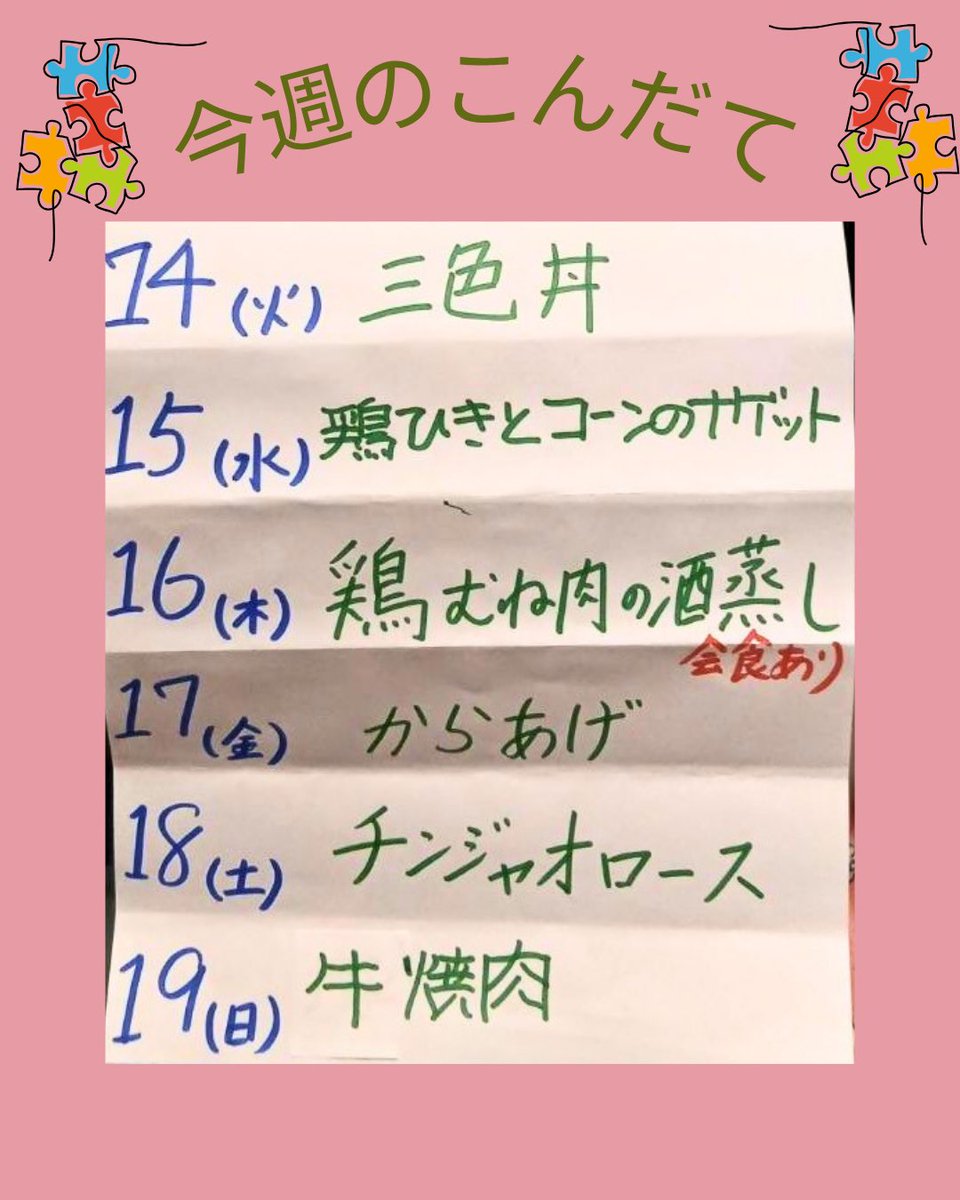 今週のこんだて
14(火) 三色丼
15(水) 鶏ひきとコーンのナゲット
16(木) 鶏むね肉の酒蒸し
会食あり
17(金) からあげ
18(土) チンジャオロース
19(日) 牛焼肉